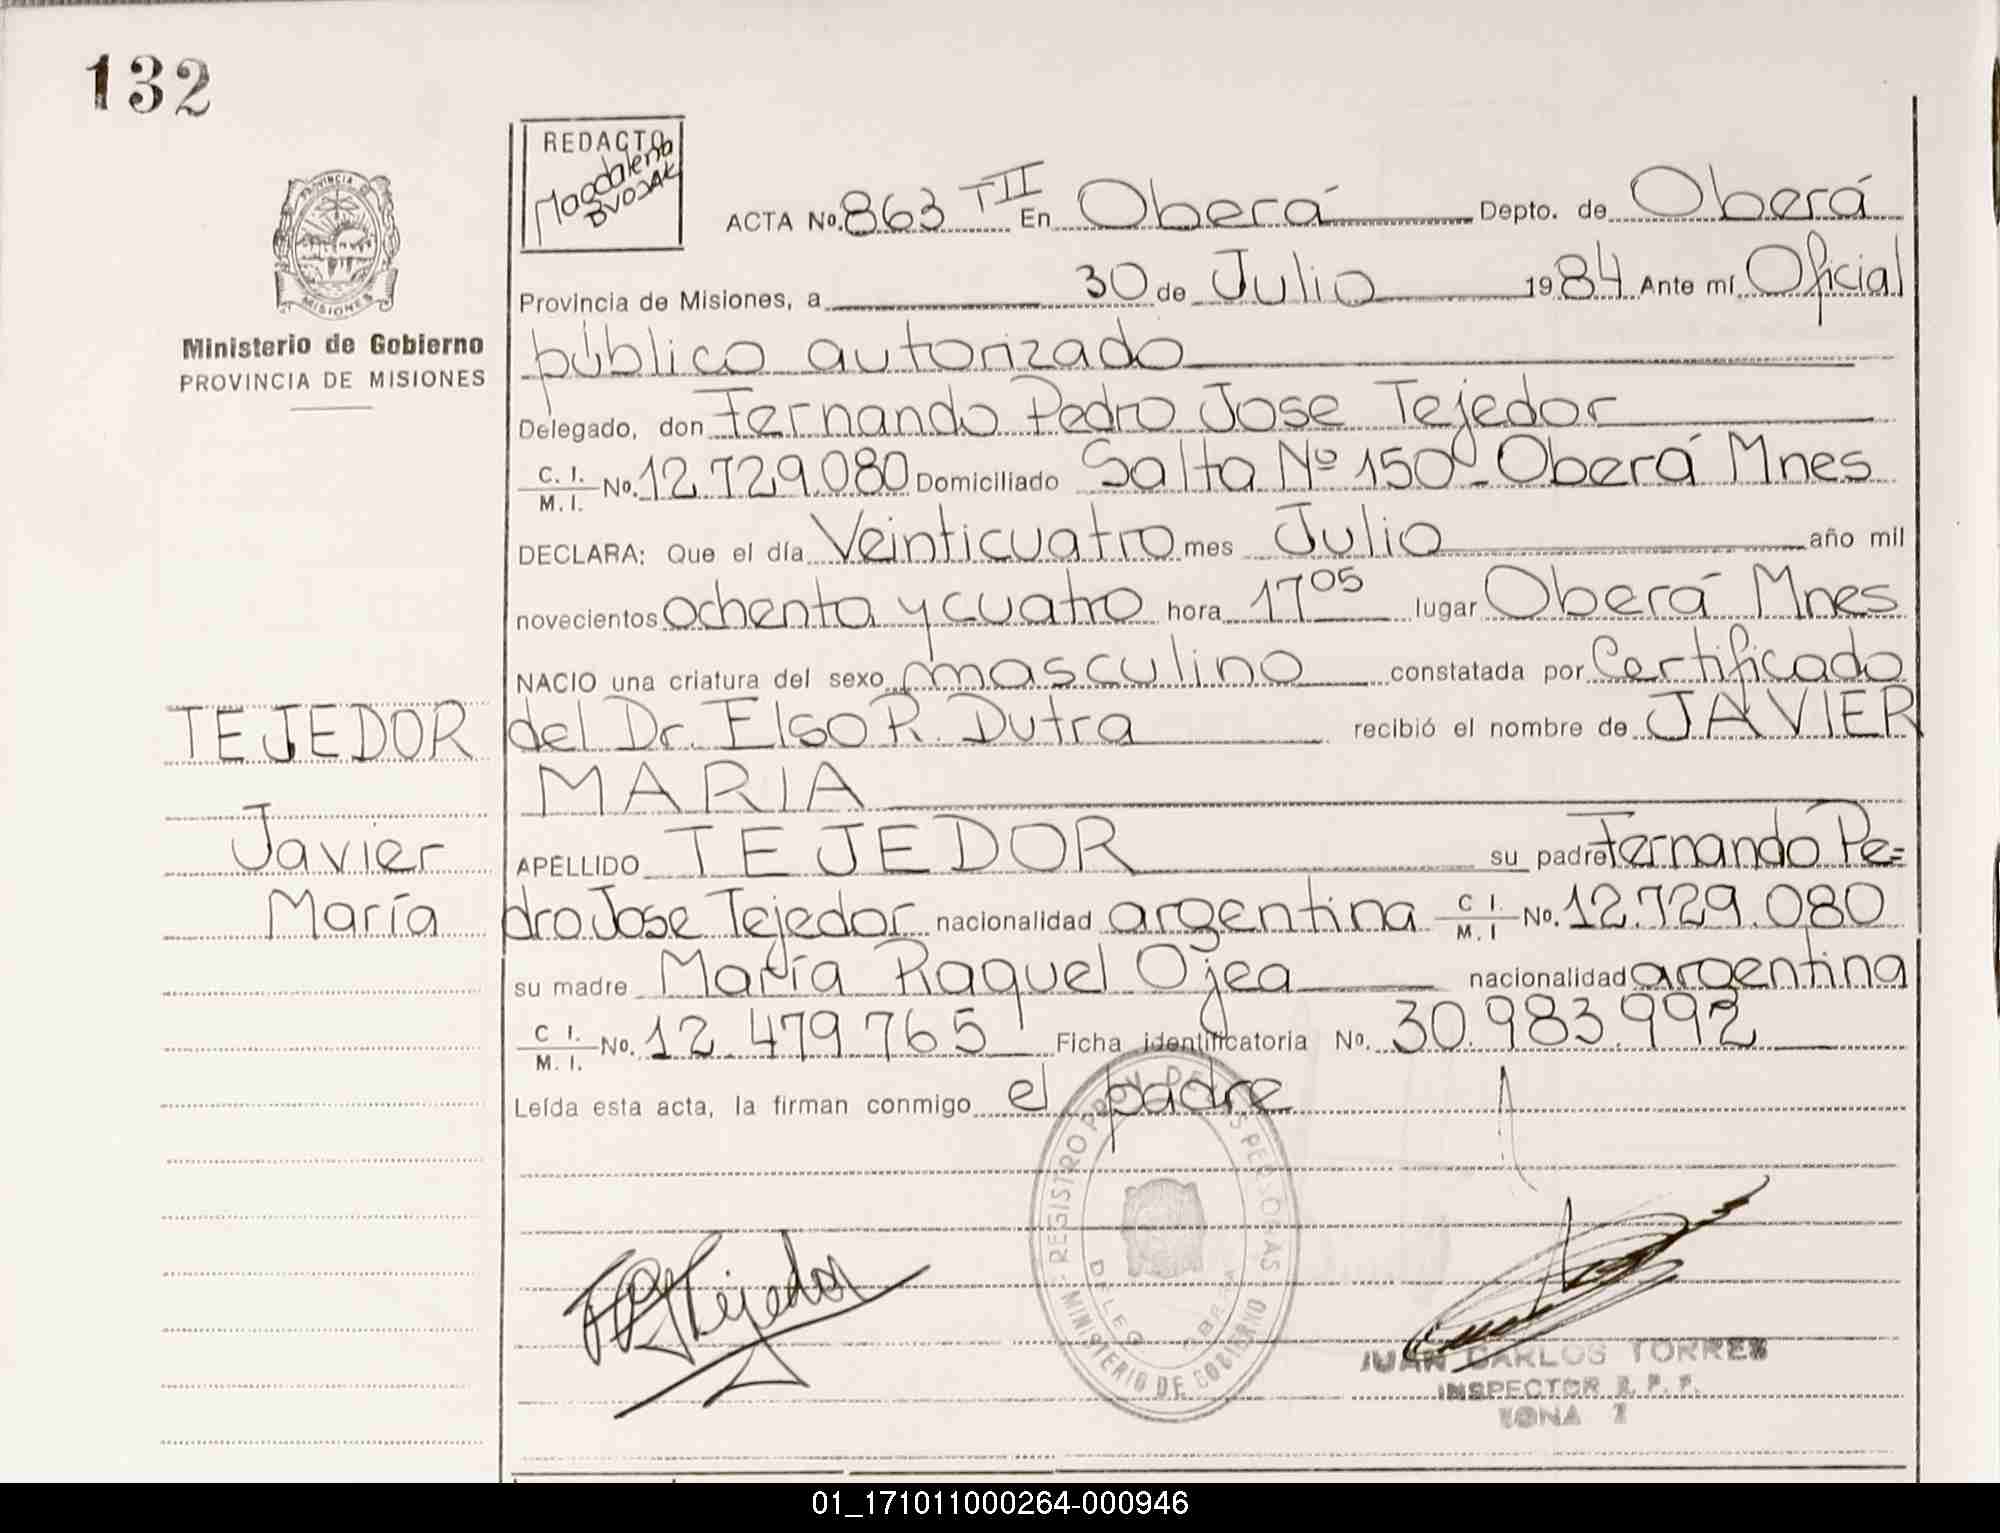 132
REDACTO
Magdalena
DVOJAK
ACTA No. 863 TII En Oberá Depto. de Oberá
PROVINCIA DE
MISIONES
Ministerio de Gobierno
PROVINCIA DE MISIONES
Provincia de Misiones, a 30 de Julio 1984 Ante mí Oficial
público autorizado
Delegado, don Fernando Pedro Jose Tejedor
C. I. M. I. No. 12.729.080 Domiciliado Salta Nº 150 - Oberá Mnes
DECLARA: Que el día Veinticuatro mes Julio año mil
novecientos ochenta y cuatro hora 17 05 lugar Oberá Mnes
NACIO una criatura del sexo masculino constatada por Certificado
del Dr. Elso R. Dutra recibió el nombre de JAVIER
MARIA
APELLIDO TEJEDOR su padre Fernando Pe=
dro Jose Tejedor nacionalidad argentina C I. M. I No. 12.729.080
su madre María Raquel Ojea nacionalidad argentina
C I. M. I. No. 12.479.765 Ficha identificatoria No. 30.983.992
Leída esta acta, la firman conmigo el padre
TEJEDOR
Javier
María
Tejedor
REGISTRO
MINISTERIO DE GOBIERNO
JUAN CARLOS TORRES
INSPECTOR R. P. P.
ZONA
01_171011000264-000946